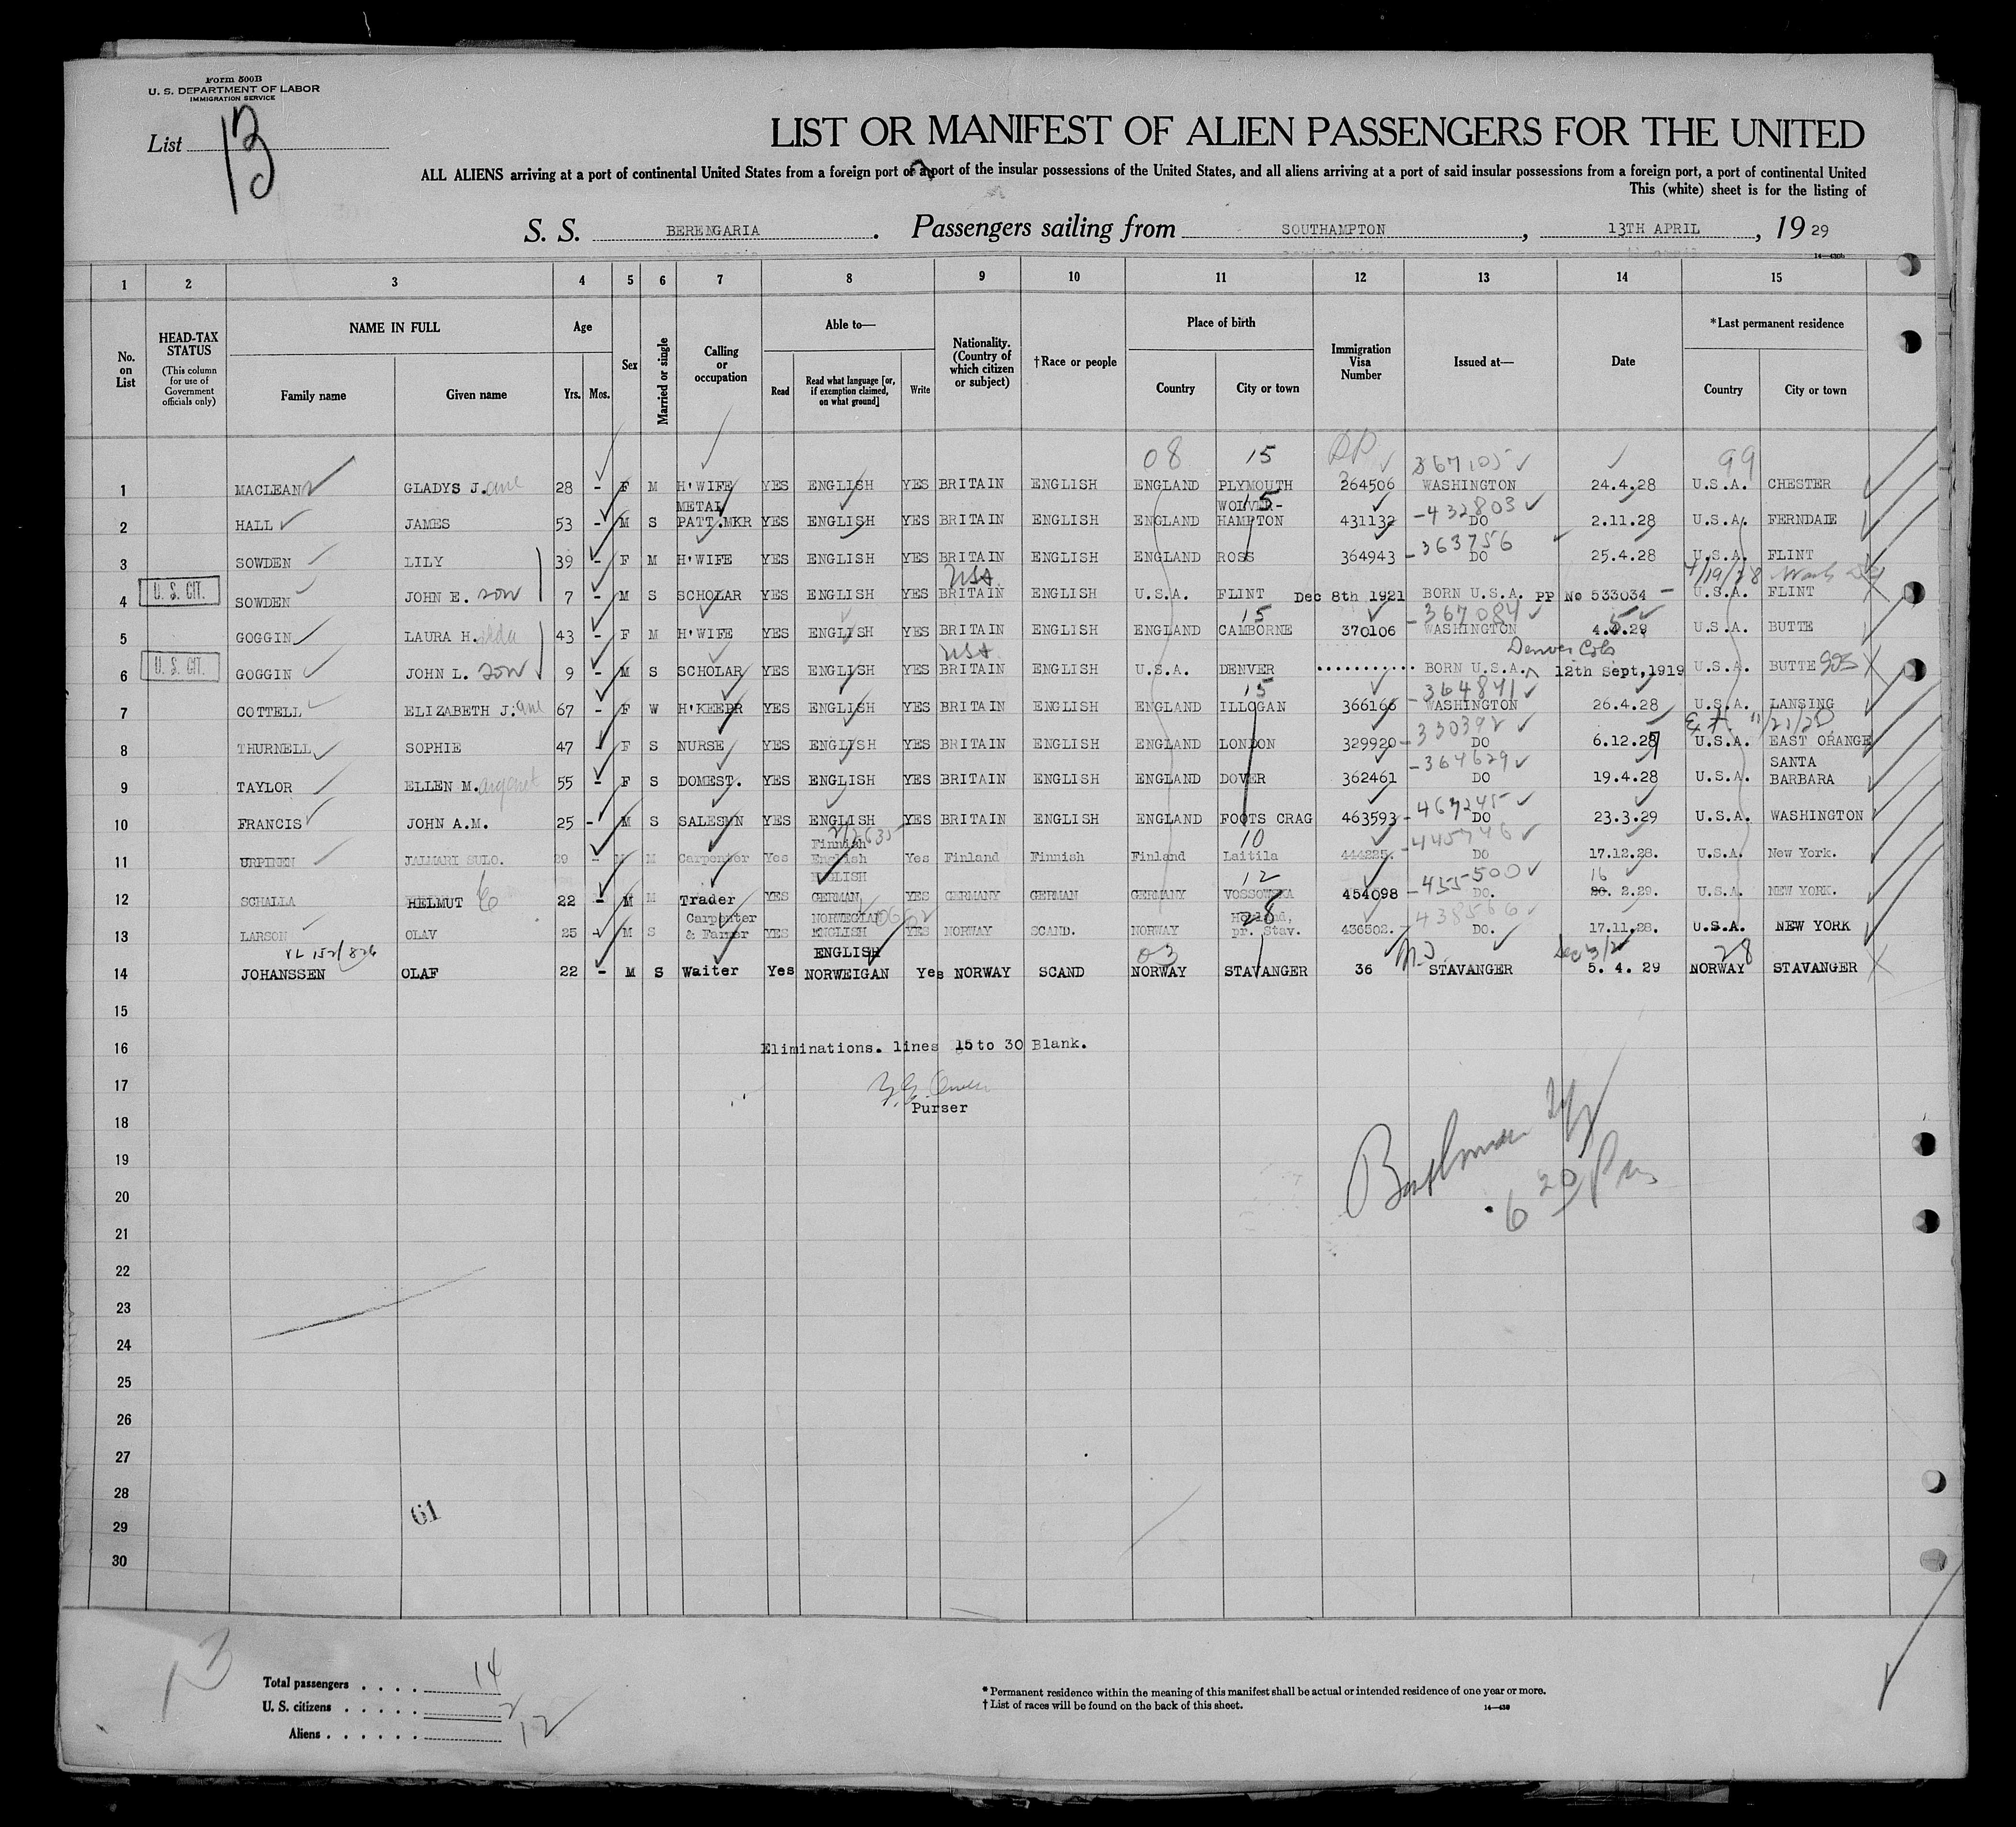 Form 500B
U. S. DEPARTMENT OF LABOR
IMMIGRATION SERVICE
List 13
LIST OR MANIFEST OF ALIEN PASSENGERS FOR THE UNITED
ALL ALIENS arriving at a port of continental United States from a foreign port or a port of the insular possessions of the United States, and all aliens arriving at a port of said insular possessions from a foreign port, a port of continental United
This (white) sheet is for the listing of
S. S. BERENGARIA. Passengers sailing from SOUTHAMPTON, 13TH APRIL, 19 29
14—430b
1 2 3 4 5 6 7 8 9 10 11 12 13 14 15
No. on List
HEAD-TAX STATUS (This column for use of Government officials only)
NAME IN FULL Family name Given name
Age Yrs. Mos.
Sex
Married or single
Calling or occupation
Able to— Read Read what language [or, if exemption claimed, on what ground] Write
Nationality. (Country of which citizen or subject)
†Race or people
Place of birth Country City or town
Immigration Visa Number
Issued at—
Date
*Last permanent residence Country City or town
08 15 367105 99
1 MACLEAN GLADYS J.ane 28 - F M H'WIFE YES ENGLISH YES BRITAIN ENGLISH ENGLAND PLYMOUTH 264506 WASHINGTON 24.4.28 U.S.A. CHESTER
METAL WOLVER- 15 -432803
2 HALL JAMES 53 - M S PATT.MKR YES ENGLISH YES BRITAIN ENGLISH ENGLAND HAMPTON 431132 DO 2.11.28 U.S.A. FERNDALE
-363756
3 SOWDEN LILY 39 - F M H'WIFE YES ENGLISH YES BRITAIN ENGLISH ENGLAND ROSS 364943 DO 25.4.28 U.S.A. FLINT
U. S. CIT. USA 4/19/28
4 SOWDEN JOHN E. son 7 - M S SCHOLAR YES ENGLISH YES BRITAIN ENGLISH U.S.A. FLINT Dec 8th 1921 BORN U.S.A. PP No 533034 - U.S.A. FLINT
15 -367084 5
5 GOGGIN LAURA H. 43 - F M H'WIFE YES ENGLISH YES BRITAIN ENGLISH ENGLAND CAMBORNE 370106 WASHINGTON 4.5.28 U.S.A. BUTTE
U. S. CIT. USA Denver Colo
6 GOGGIN JOHN L. son 9 - M S SCHOLAR YES ENGLISH YES BRITAIN ENGLISH U.S.A. DENVER ........... BORN U.S.A. 12th Sept,1919 U.S.A. BUTTE
15 -364841
7 COTTELL ELIZABETH J.ane 67 - F W H'KEEPR YES ENGLISH YES BRITAIN ENGLISH ENGLAND ILLOGAN 366166 WASHINGTON 26.4.28 U.S.A. LANSING
-330392
8 THURNELL SOPHIE 47 - F S NURSE YES ENGLISH YES BRITAIN ENGLISH ENGLAND LONDON 329920 DO 6.12.27 U.S.A. EAST ORANGE
-364629 SANTA
9 TAYLOR ELLEN M.argaret 55 - F S DOMEST. YES ENGLISH YES BRITAIN ENGLISH ENGLAND DOVER 362461 DO 19.4.28 U.S.A. BARBARA
-467245
10 FRANCIS JOHN A.M. 25 - M S SALESMN YES ENGLISH YES BRITAIN ENGLISH ENGLAND FOOTS CRAG 463593 DO 23.3.29 U.S.A. WASHINGTON
Finnish 10 -445746
11 JALMARI SULO. 29 - M M Carpenter Yes English Yes Finland Finnish Finland Laitila 444225. DO 17.12.28. U.S.A. New York.
ENGLISH 12 -455500 16
12 SCHALLA HELMUT E 22 - M M Trader YES GERMAN YES GERMANY GERMAN GERMANY VOSSOWSKA 454098 DO. 20. 2.29. U.S.A. NEW YORK.
Carpenter NORWEGIAN 28 438566
13 LARSON OLAV 25 - M S & Farmer YES ENGLISH YES NORWAY SCAND. NORWAY pr. Stav. 436502. DO. 17.11.28. U.S.A. NEW YORK
ENGLISH 03 28
14 JOHANSSEN OLAF 22 - M S Waiter Yes NORWEIGAN Yes NORWAY SCAND NORWAY STAVANGER 36 STAVANGER 5. 4. 29 NORWAY STAVANGER
15
16 Eliminations. lines 15 to 30 Blank.
17
Purser
18
19
20
21
22
23
24
25
26
27
28
61
29
30
13
Total passengers . . . . 14
U. S. citizens . . . . . 2
Aliens . . . . . . 12
* Permanent residence within the meaning of this manifest shall be actual or intended residence of one year or more.
† List of races will be found on the back of this sheet.
14—430